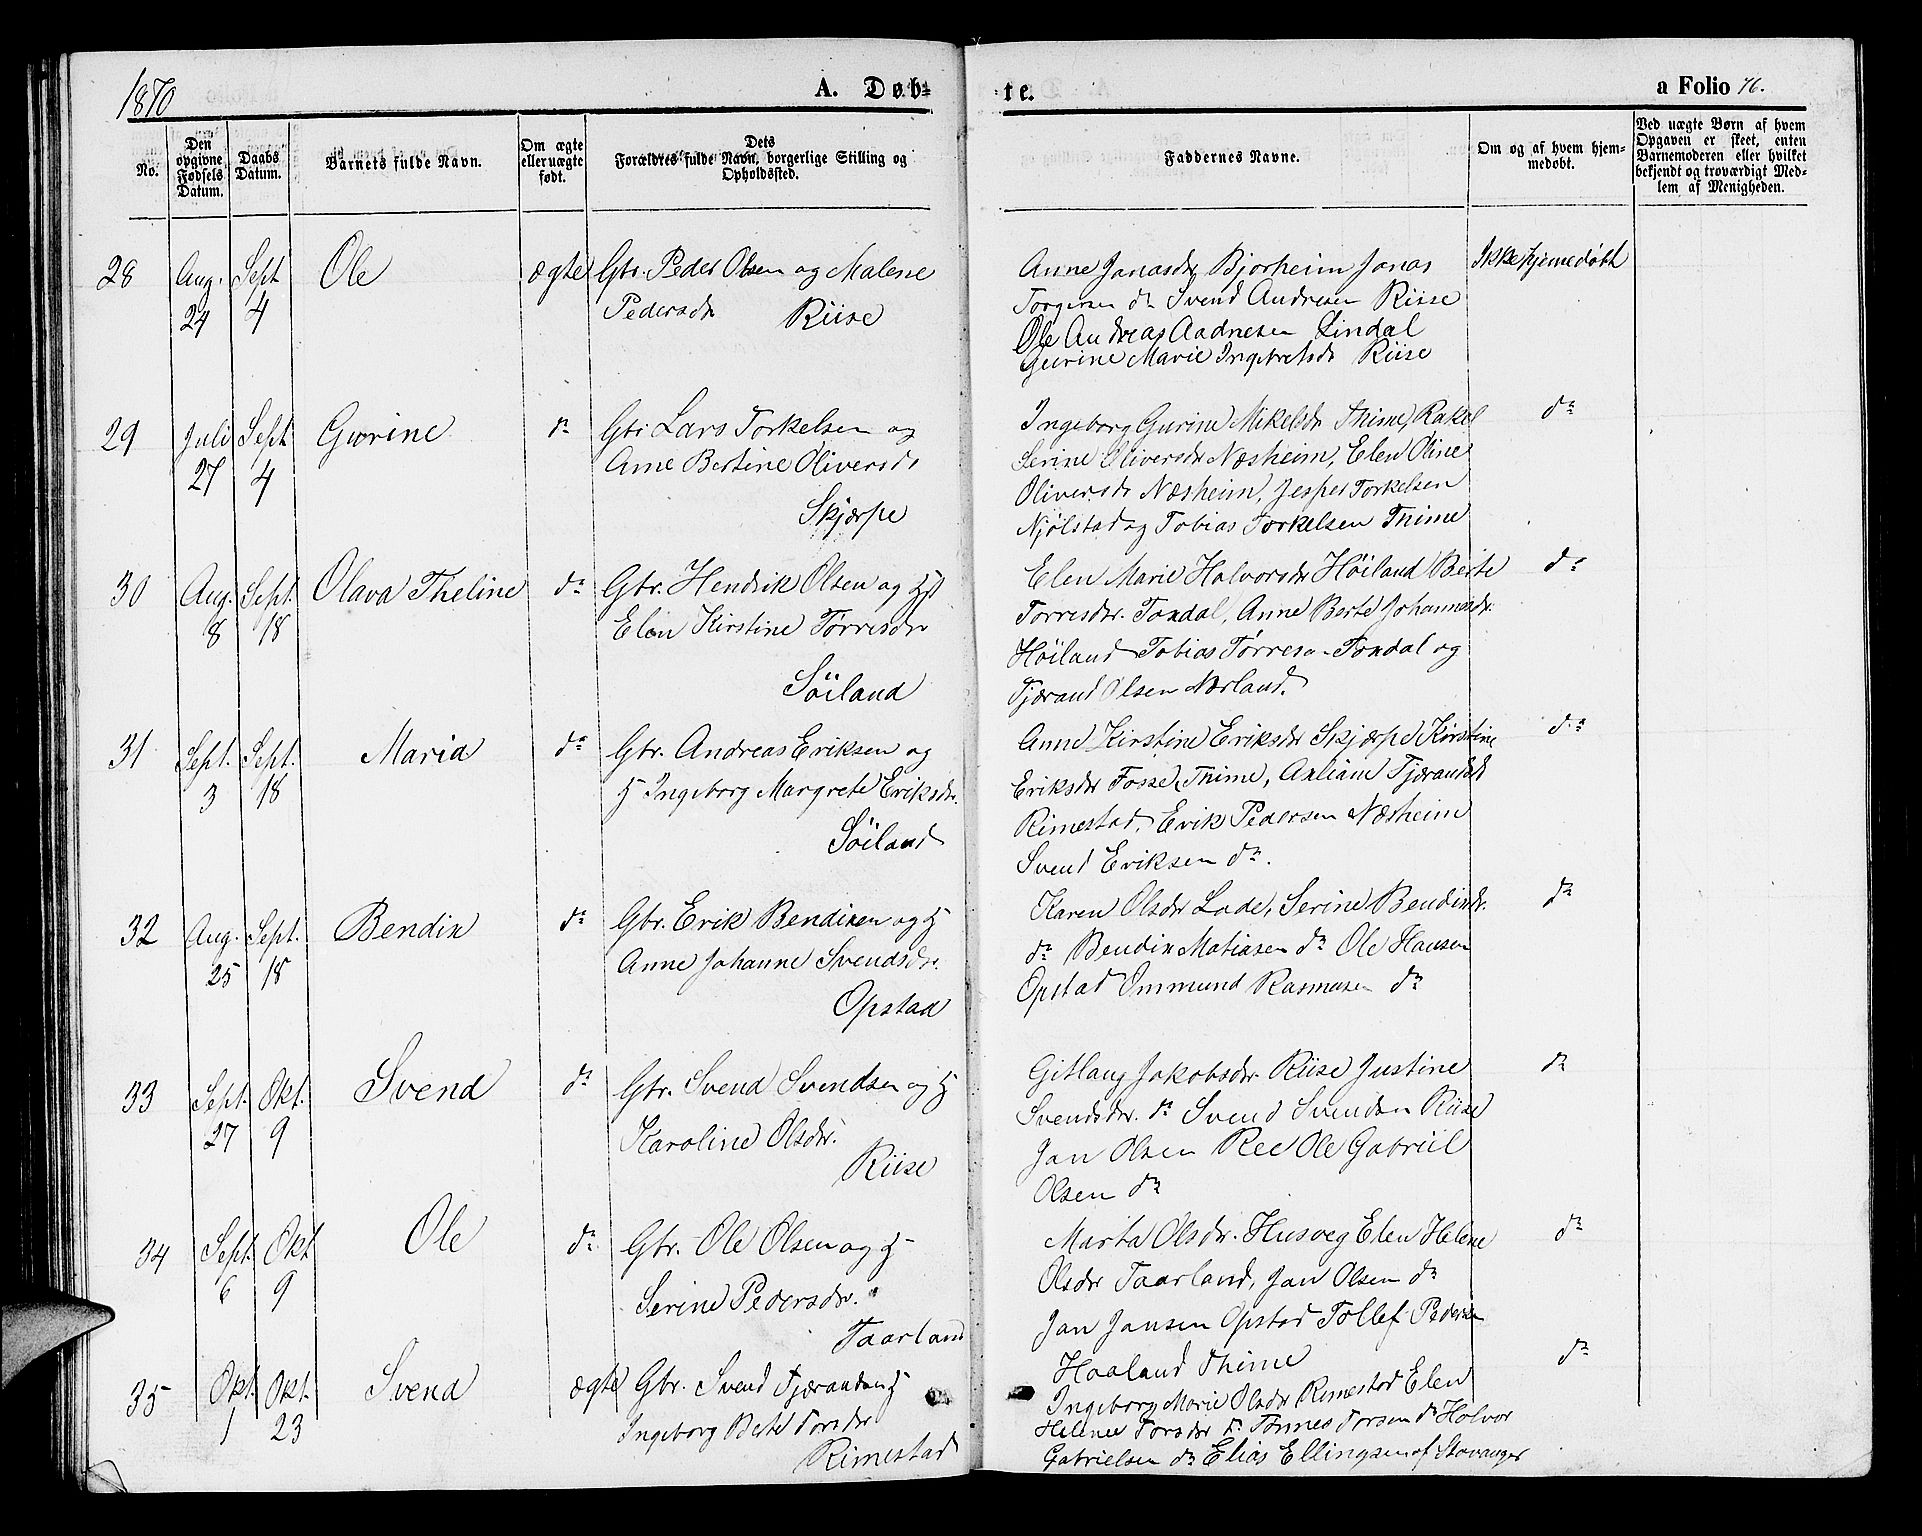 1870
A. Døb-
te.
a Folio 76.
No.
Den opgivne Fødsels Datum.
Daabs Datum.
Barnets fulde Navn.
Om ægte eller uægte født.
Dets Forældres fulde Navn, borgerlige Stilling og Opholdssted.
Faddernes Navne.
Om og af hvem hjemmedøbt.
Ved uægte Børn af hvem Opgaven er skeet, enten Barnemoderen eller hvilket bekjendt og troværdigt Medlem af Menigheden.
28 Aug. 24 Sept 4 Ole ægte Gbr. Peder Olsen og Malene
Pedersdr Riise
Anne Jonasdr Bjorheim Jonas Ikke hjemedøbt
Torgersen do Svend Andresen Riise
Ole Andreas Aadnesen Lindal
Gurine Marie Ingebretsdr Riise
29 Juli 27 Sept 4 Gurine do Gbr Lars Torkelsen og
Ane Bertine Oliversdr
Skjærpe
Ingeborg Gurine Mikelsdr Thime, Rakel do
Serine Oliversdr Næsheim, Elen Oline
Oliversdr Næsheim, Jesper Torkelsen
Njølstad og Tobias Torkelsen Thime
30 Aug. 8 Sept. 18 Olava Theline do Gbr. Hendrik Olsen og Hst
Elen Kirstine Tørresdr
Søiland
Elen Marie Halvorsdr Høiland Berte do
Torresdr. Tondal, Anne Berte Johannesdr.
Høiland Tobias Tørresen Tondal og
Tjærand Olsen Nærland.
31 Sept. 3 Sept. 18 Maria do Gbr. Andreas Eriksen og
H Ingeborg Margrete Eriksdr.
Søiland
Anne Kirstine Eriksdr Skjærpe Kirstine do
Eriksdr Fosse, Thime, Axliane Tjærandsdr
Rimestad, Erik Pedersen Næsheim
Svend Eriksen do.
32 Aug. 25 Sept. 18 Bendix do Gbr. Erik Bendixen og H
Anne Johanne Svendsdr.
Opstad
Karen Olsdr Lode, Serine Bendixdr. do
do Bendix Matiasen do Ole Hansen
Opstad Ommund Rasmusen do
33 Sept. 27 Okt. 9 Svend do Gbr. Svend Svendsen og H
Karoline Olsdr.
Riise
Gitlaug Jakobsdr. Riise Justine do
Svendsdr. do Svend Svendsen Riise
Jan Olsen Ree Ole Gabriel
Olsen do
34 Sept. 6 Okt 9 Ole do Gbr. Ole Olsen og H
Serine Pedersdr.
Taarland
Marta Olsdr. Husveg Elen Helene do
Olsdr Taarland, Jan Olsen do
Jan Jansen Opstad Tollef Pedersen
Haaland Thime
35 Okt. 1 Okt. 23 Svend ægte Gbr. Svend Tjærandsen H
Ingeborg Berte Torsdr
Rimestad
Ingeborg Marie Olsdr Rimestad Elen do
Helene Torsdr do Tønnes Torsen do Halvor
Gabrielsen do Elias Ellingsen af Stavanger